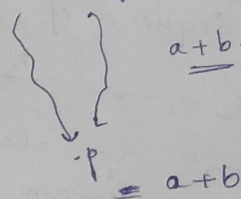 a + b
.p
= a + b